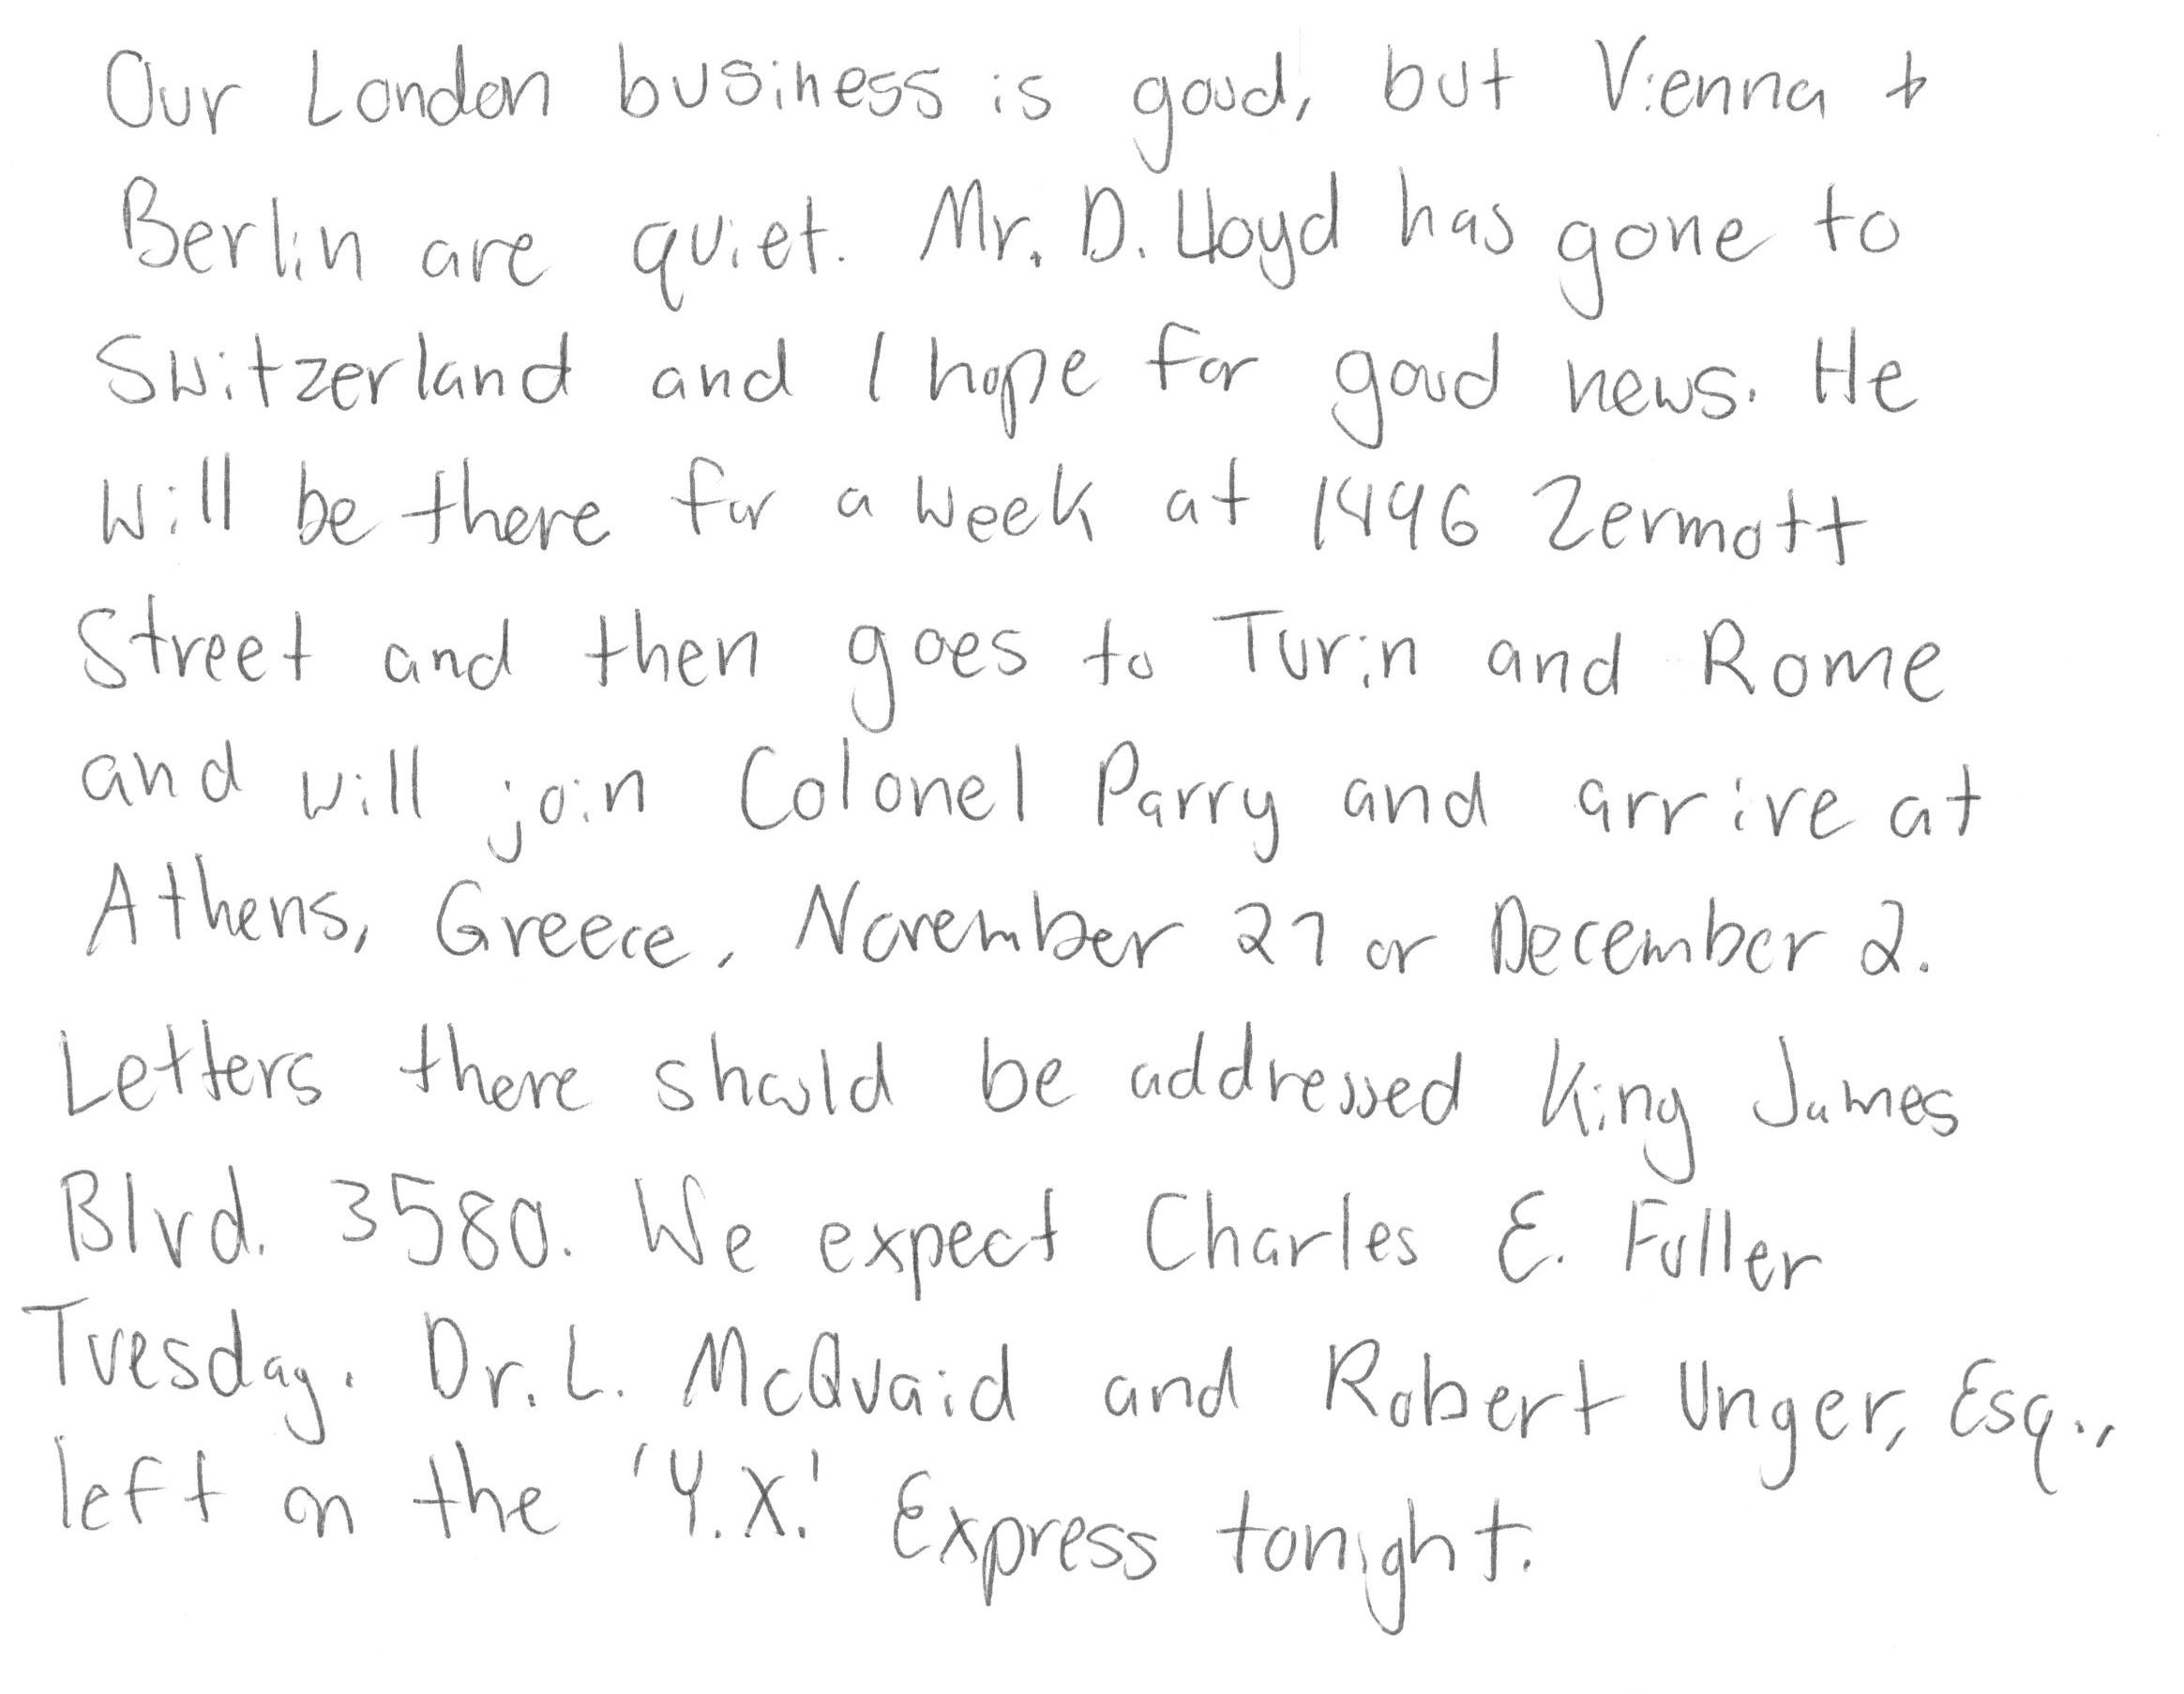 Our London business is good, but Vienna +
Berlin are quiet. Mr. D. Lloyd has gone to
Switzerland and I hope for good news. He
will be there for a week at 1496 Zermott
Street and then goes to Turin and Rome
and will join Colonel Parry and arrive at
Athens, Greece, November 27 or December 2.
Letters there should be addressed King James
Blvd. 3580. We expect Charles E. Fuller
Tuesday. Dr. L. McQuaid and Robert Unger, Esq.,
left on the 'Y.X.' Express tonight.